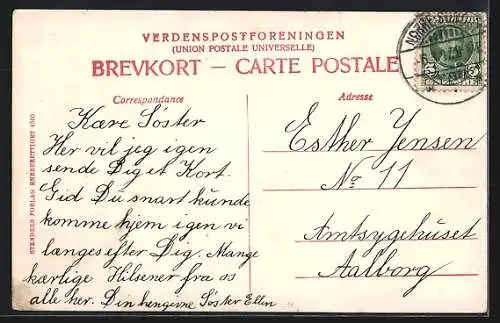 VERDENSPOSTFORENINGEN
(UNION POSTALE UNIVERSELLE)
BREVKORT — CARTE POSTALE
Correspondance
Kære Söster
Her vil jeg igen
sende Dig et Kort.
Gid Du snart kunde
komme hjem igen vi
længes efter Dig. Mange
kærlige Hilsener fra os
alle her. Din hengivne Söster Ellen
Adresse
Esther Jensen
No 11
Amtsygehuset
Aalborg
STENDERS FORLAG ENEBERETTIGET
5
5